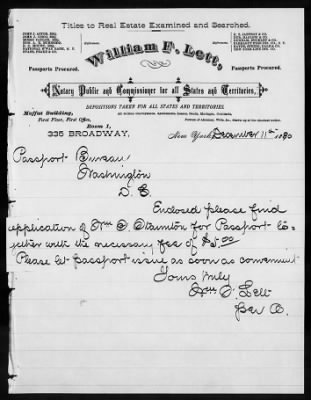 Titles to Real Estate Examined and Searched.
William F. Lett,
Passports Procured.
Passports Procured.
Notary Public and Commissioner for all States and Territories,
DEPOSITIONS TAKEN FOR ALL STATES AND TERRITORIES.
Moffat Building,
First Floor, First Office,
Room 1,
335 BROADWAY,
New York, December 11th 1890
Passport Bureau
Washington
D. C.
Enclosed please find
application of Wm S. Staunton for Passport to-
gether with the necessary fee of $5.00
Please let passport issue as soon as convenient
Yours truly
Wm F. Lett
per B.